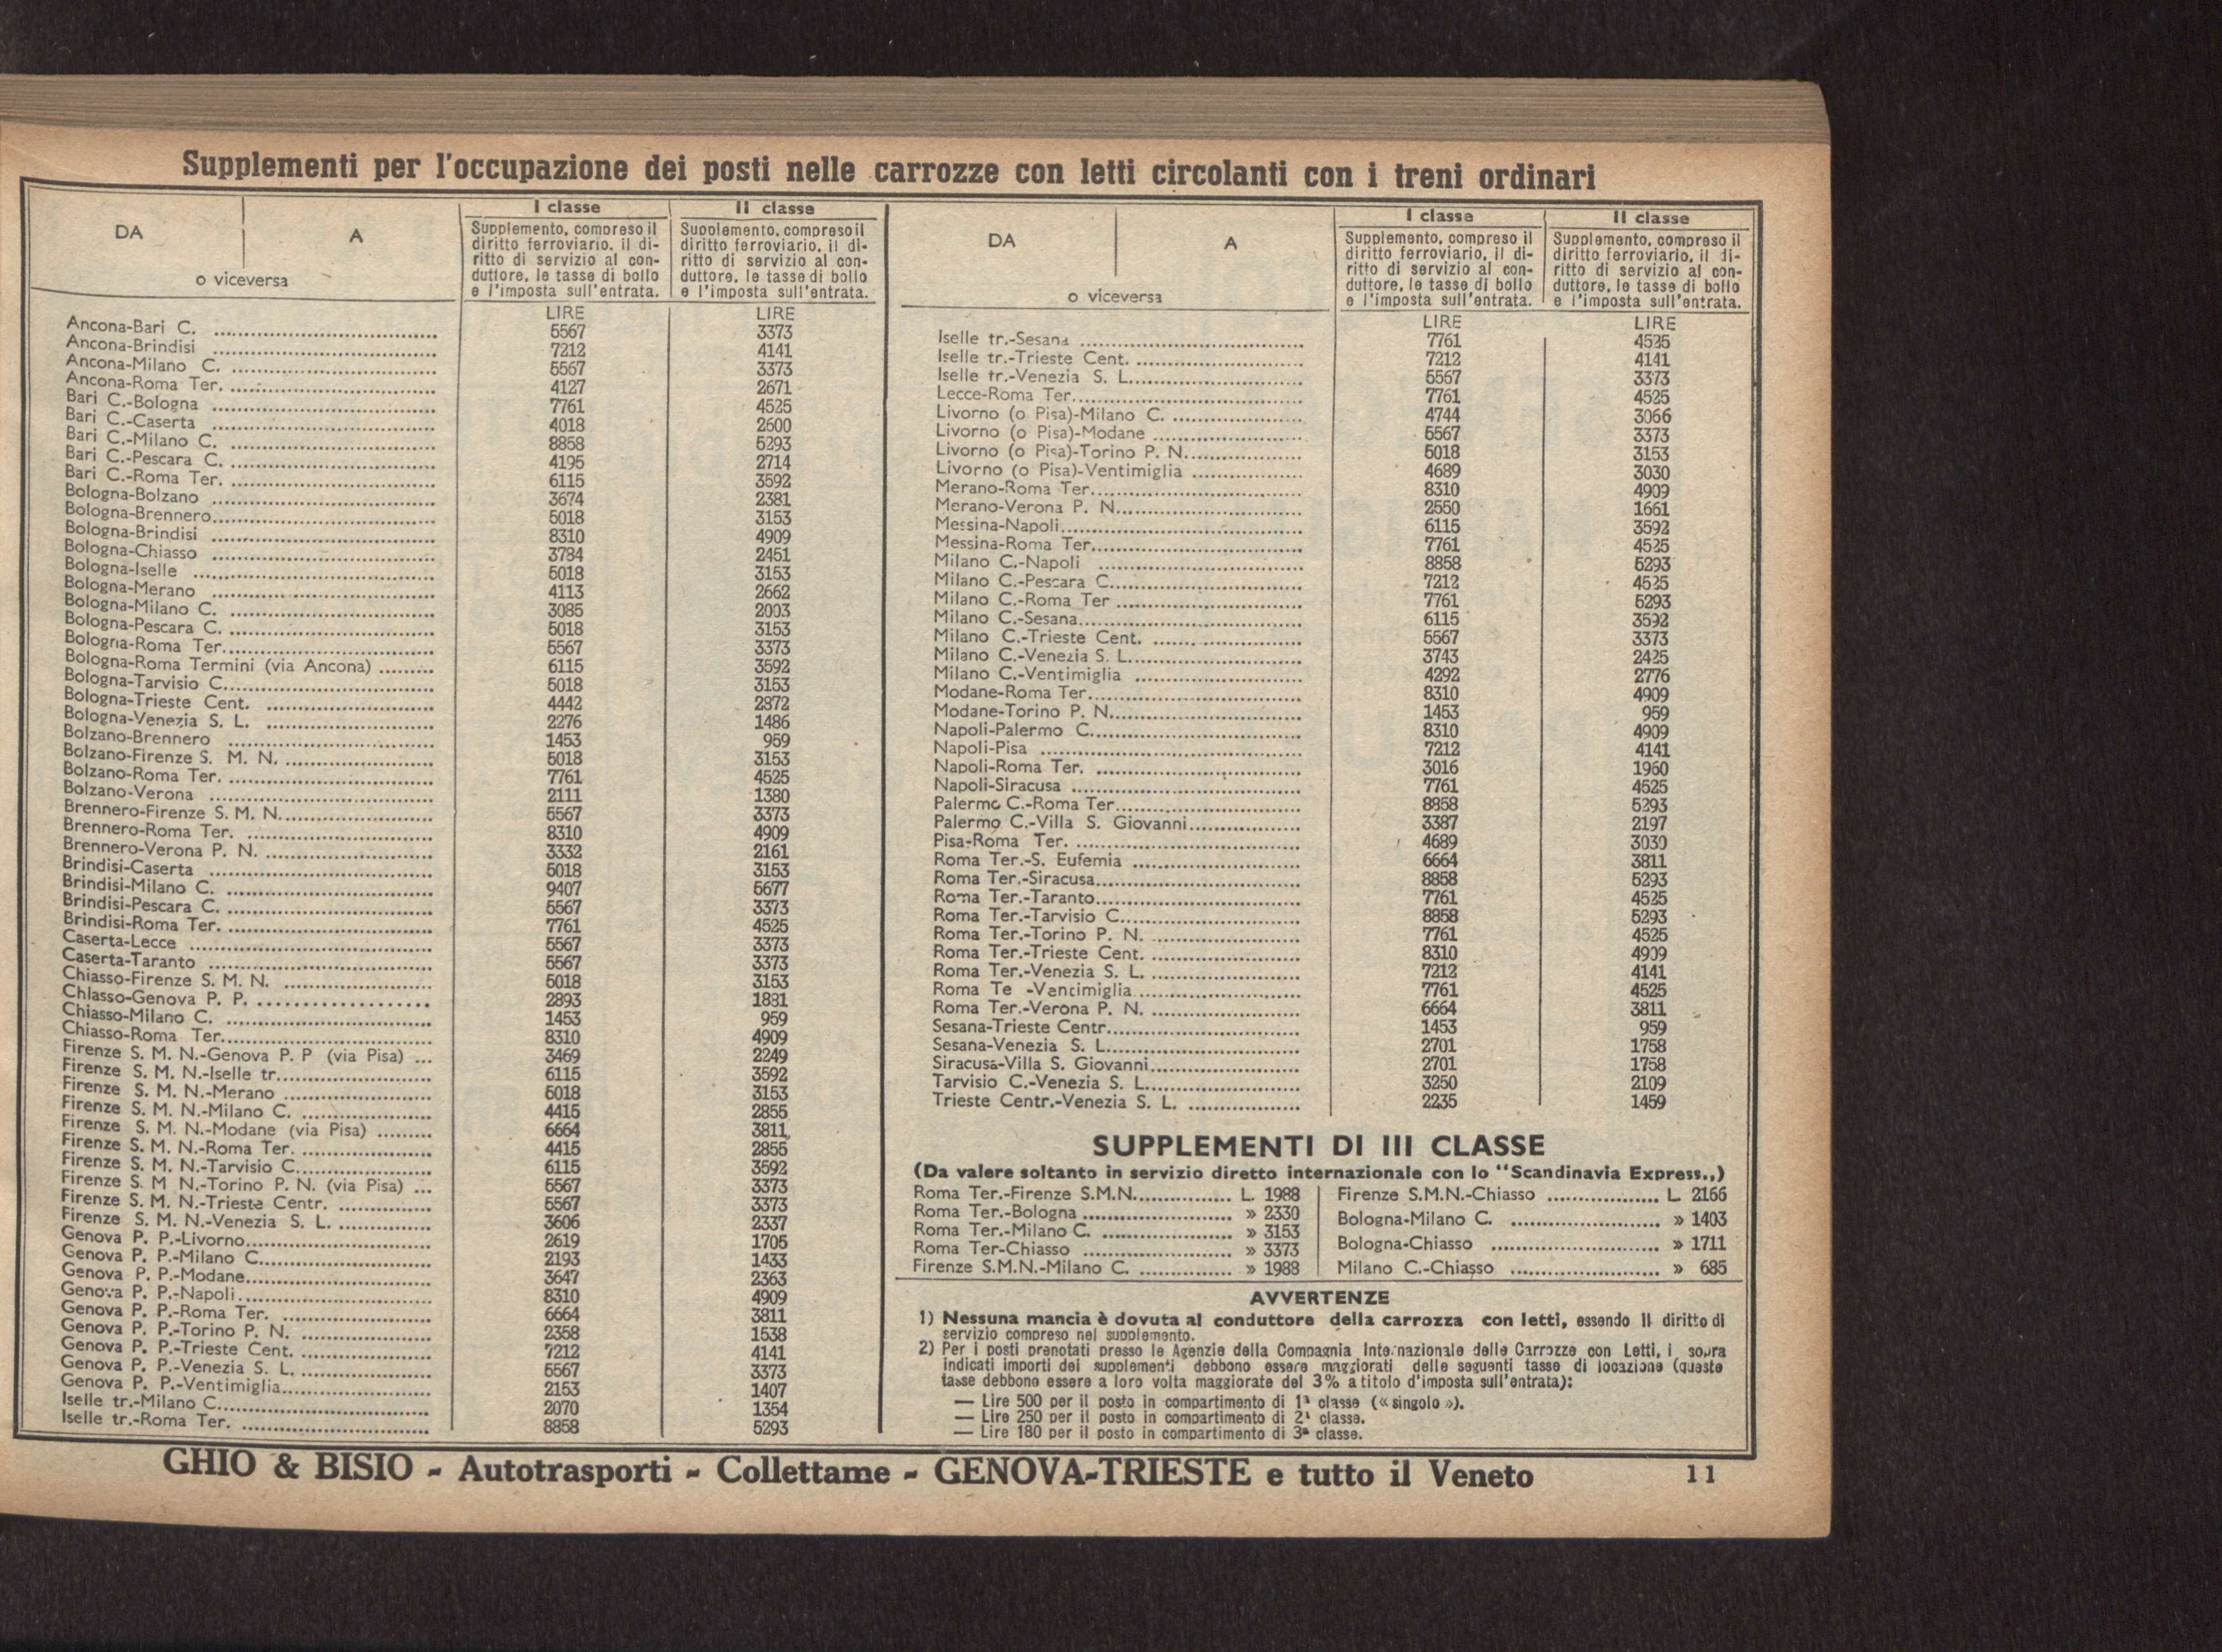 Supplementi per l'occupazione dei posti nelle carrozze con letti circolanti con i treni ordinari
DA A
o viceversa
I classe
Supplemento, compreso il
diritto ferroviario, il di-
ritto di servizio al con-
duttore, le tasse di bollo
e l'imposta sull'entrata.
II classe
Supplemento, compreso il
diritto ferroviario, il di-
ritto di servizio al con-
duttore, le tasse di bollo
e l'imposta sull'entrata.
LIRE LIRE
Ancona-Bari C. 5567 3373
Ancona-Brindisi 7212 4141
Ancona-Milano C. 5567 3373
Ancona-Roma Ter. 4127 2671
Bari C.-Bologna 7761 4525
Bari C.-Caserta 4018 2600
Bari C.-Milano C. 8858 5293
Bari C.-Pescara C. 4195 2714
Bari C.-Roma Ter. 6115 3592
Bologna-Bolzano 3674 2381
Bologna-Brennero 5018 3153
Bologna-Brindisi 8310 4909
Bologna-Chiasso 3784 2451
Bologna-Iselle 5018 3153
Bologna-Merano 4113 2662
Bologna-Milano C. 3085 2003
Bologna-Pescara C. 5018 3153
Bologna-Roma Ter. 5567 3373
Bologna-Roma Termini (via Ancona) 6115 3592
Bologna-Tarvisio C. 5018 3153
Bologna-Trieste Cent. 4442 2872
Bologna-Venezia S. L. 2276 1486
Bolzano-Brennero 1453 959
Bolzano-Firenze S. M. N. 5018 3153
Bolzano-Roma Ter. 7761 4525
Bolzano-Verona 2111 1380
Brennero-Firenze S. M. N. 5567 3373
Brennero-Roma Ter. 8310 4909
Brennero-Verona P. N. 3332 2161
Brindisi-Caserta 5018 3153
Brindisi-Milano C. 9407 5677
Brindisi-Pescara C. 5567 3373
Brindisi-Roma Ter. 7761 4525
Caserta-Lecce 5567 3373
Caserta-Taranto 5567 3373
Chiasso-Firenze S. M. N. 5018 3153
Chiasso-Genova P. P. 2893 1881
Chiasso-Milano C. 1453 959
Chiasso-Roma Ter. 8310 4909
Firenze S. M. N.-Genova P. P (via Pisa) 3469 2249
Firenze S. M. N.-Iselle tr. 6115 3592
Firenze S. M. N.-Merano 5018 3153
Firenze S. M. N.-Milano C. 4415 2855
Firenze S. M. N.-Modane (via Pisa) 6664 3811
Firenze S. M. N.-Roma Ter. 4415 2855
Firenze S. M. N.-Tarvisio C. 6115 3592
Firenze S. M N.-Torino P. N. (via Pisa) 5567 3373
Firenze S. M. N.-Trieste Centr. 5567 3373
Firenze S. M. N.-Venezia S. L. 3606 2337
Genova P. P.-Livorno 2619 1705
Genova P. P.-Milano C. 2193 1433
Genova P. P.-Modane 3647 2363
Genova P. P.-Napoli 8310 4909
Genova P. P.-Roma Ter. 6664 3811
Genova P. P.-Torino P. N. 2358 1538
Genova P. P.-Trieste Cent. 7212 4141
Genova P. P.-Venezia S. L. 5567 3373
Genova P. P.-Ventimiglia 2153 1407
Iselle tr.-Milano C. 2070 1354
Iselle tr.-Roma Ter. 8858 5293
DA A
o viceversa
I classe
Supplemento, compreso il
diritto ferroviario, il di-
ritto di servizio al con-
duttore, le tasse di bollo
e l'imposta sull'entrata.
II classe
Supplemento, compreso il
diritto ferroviario, il di-
ritto di servizio al con-
duttore, le tasse di bollo
e l'imposta sull'entrata.
LIRE LIRE
Iselle tr.-Sesana 7761 4525
Iselle tr.-Trieste Cent. 7212 4141
Iselle tr.-Venezia S. L. 5567 3373
Lecce-Roma Ter. 7761 4525
Livorno (o Pisa)-Milano C. 4744 3066
Livorno (o Pisa)-Modane 5567 3373
Livorno (o Pisa)-Torino P. N. 5018 3153
Livorno (o Pisa)-Ventimiglia 4689 3030
Merano-Roma Ter. 8310 4909
Merano-Verona P. N. 2550 1661
Messina-Napoli 6115 3592
Messina-Roma Ter. 7761 4525
Milano C.-Napoli 8858 5293
Milano C.-Pescara C. 7212 4525
Milano C.-Roma Ter 7761 5293
Milano C.-Sesana 6115 3592
Milano C.-Trieste Cent. 5567 3373
Milano C.-Venezia S. L. 3743 2425
Milano C.-Ventimiglia 4292 2776
Modane-Roma Ter. 8310 4909
Modane-Torino P. N. 1453 959
Napoli-Palermo C. 8310 4909
Napoli-Pisa 7212 4141
Napoli-Roma Ter. 3016 1960
Napoli-Siracusa 7761 4525
Palermo C.-Roma Ter. 8858 5293
Palermo C.-Villa S. Giovanni 3387 2197
Pisa-Roma Ter. 4689 3030
Roma Ter.-S. Eufemia 6664 3811
Roma Ter.-Siracusa 8858 5293
Roma Ter.-Taranto 7761 4525
Roma Ter.-Tarvisio C. 8858 5293
Roma Ter.-Torino P. N. 7761 4525
Roma Ter.-Trieste Cent. 8310 4909
Roma Ter.-Venezia S. L. 7212 4141
Roma Te -Ventimiglia 7761 4525
Roma Ter.-Verona P. N. 6664 3811
Sesana-Trieste Centr. 1453 959
Sesana-Venezia S. L. 2701 1758
Siracusa-Villa S. Giovanni 2701 1758
Tarvisio C.-Venezia S. L. 3250 2109
Trieste Centr.-Venezia S. L. 2235 1459
SUPPLEMENTI DI III CLASSE
(Da valere soltanto in servizio diretto internazionale con lo "Scandinavia Express„)
Roma Ter.-Firenze S.M.N. L. 1988
Roma Ter.-Bologna » 2330
Roma Ter.-Milano C. » 3153
Roma Ter-Chiasso » 3373
Firenze S.M.N.-Milano C. » 1988
Firenze S.M.N.-Chiasso L. 2166
Bologna-Milano C. » 1403
Bologna-Chiasso » 1711
Milano C.-Chiasso » 685
AVVERTENZE
1) Nessuna mancia è dovuta al conduttore della carrozza con letti, essendo il diritto di
servizio compreso nel supplemento.
2) Per i posti prenotati presso le Agenzie della Compagnia Internazionale delle Carrozze con Letti, i sopra
indicati importi dei supplementi debbono essere maggiorati delle seguenti tasse di locazione (queste
tasse debbono essere a loro volta maggiorate del 3% a titolo d'imposta sull'entrata):
— Lire 500 per il posto in compartimento di 1ª classe (« singolo »).
— Lire 250 per il posto in compartimento di 2ª classe.
— Lire 180 per il posto in compartimento di 3ª classe.
GHIO & BISIO - Autotrasporti - Collettame - GENOVA-TRIESTE e tutto il Veneto
11